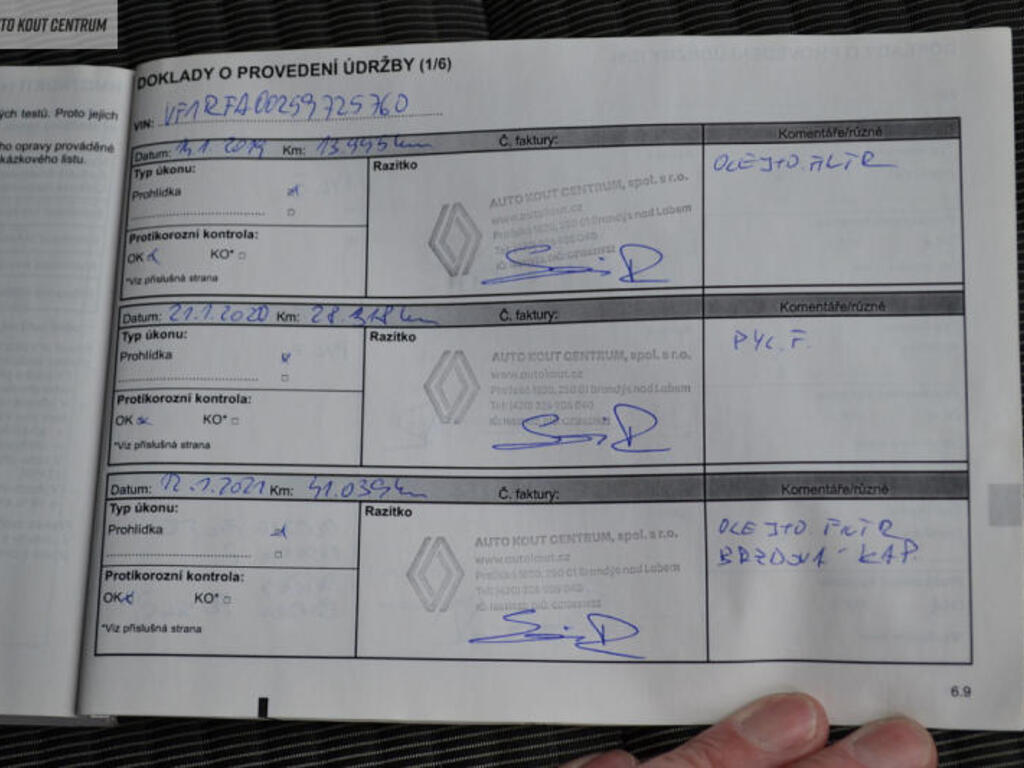 TO KOUT CENTRUM
ých testů. Proto jejich
ho opravy prováděné
kázkového listu.
DOKLADY O PROVEDENÍ ÚDRŽBY (1/6)
VIN: VF1RFA00259725760
Datum: 1.2019 Km: 13.995 km Č. faktury: Komentáře/různé
Typ úkonu:
Prohlídka
Razítko
OLEJ+O.FILTR
AUTO KOUT CENTRUM, spol. s r.o.
www.autokout.cz
Pražská 1930, 250 01 Brandýs nad Labem
Protikorozní kontrola:
OK KO*
*Viz příslušná strana
Datum: 21.1.2020 Km: 28. km Č. faktury: Komentáře/různé
Typ úkonu:
Prohlídka
Razítko
PYL. F.
AUTO KOUT CENTRUM, spol. s r.o.
www.autokout.cz
Pražská 1930, 250 01 Brandýs nad Labem
Tel: (420) 326 906 040
Protikorozní kontrola:
OK KO*
*Viz příslušná strana
Datum: 12.1.2021 Km: 41.039 km Č. faktury: Komentáře/různé
Typ úkonu:
Prohlídka
Razítko
OLEJ+O FILTR
BRZDOVÁ - KAP.
AUTO KOUT CENTRUM, spol. s r.o.
www.autokout.cz
Pražská 1930, 250 01 Brandýs nad Labem
Tel: (420) 326 906 040
Protikorozní kontrola:
OK KO*
*Viz příslušná strana
6.9